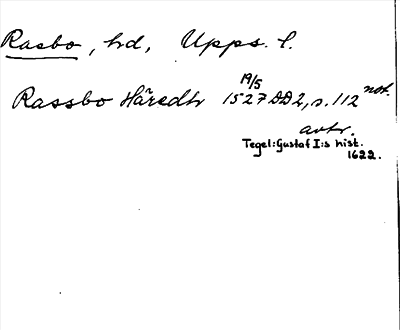 Rasbo, hd, Upps. l.
Rassbo Häredh 19/5 1527 DD2, s. 112 not.
avtr.
Tegel: Gustaf I:s hist.
1622.